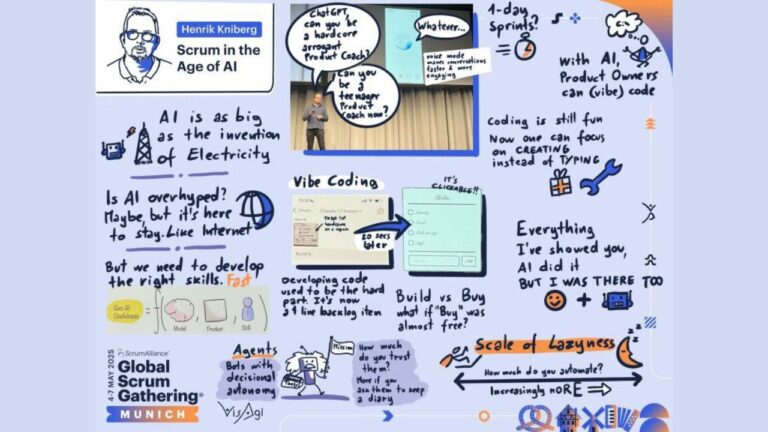 Henrik Kniberg
Scrum in the
Age of AI
ChatGPT,
can you be a
hardcore
arrogant
Product Coach?
Can you
be a
teenager
Product
Coach now?
Whatever...
voice mode
makes conversations
faster & more
engaging
1-day
Sprints?
With AI,
Product Owners
can (vibe) code
AI is as big
as the invention
of Electricity
Coding is still fun
Now one can focus
on CREATING
instead of TYPING
Is AI overhyped?
Maybe, but it's here
to stay. Like Internet
Vibe Coding
IT'S
CLICKABLE!!
20 secs
later
Everything
I've showed you,
AI did it
BUT I WAS THERE TOO
But we need to develop
the right skills. Fast
Gen AI
Usefulness
= f(
Model
,
Product
,
Skill
)
Developing code
used to be the hard
part. It's now
a 1 line backlog item
Build vs Buy
what if "Buy" was
almost free?
4-7 MAY 2025
ScrumAlliance®
Global
Scrum
Gathering®
MUNICH
Agents
Bots with
decisional
autonomy
VisAgi
Mission
Tools
How much
do you trust
them?
More if you
ask them to keep
a diary
Scale of Lazyness
zzz
How much do you automate?
Increasingly moRE